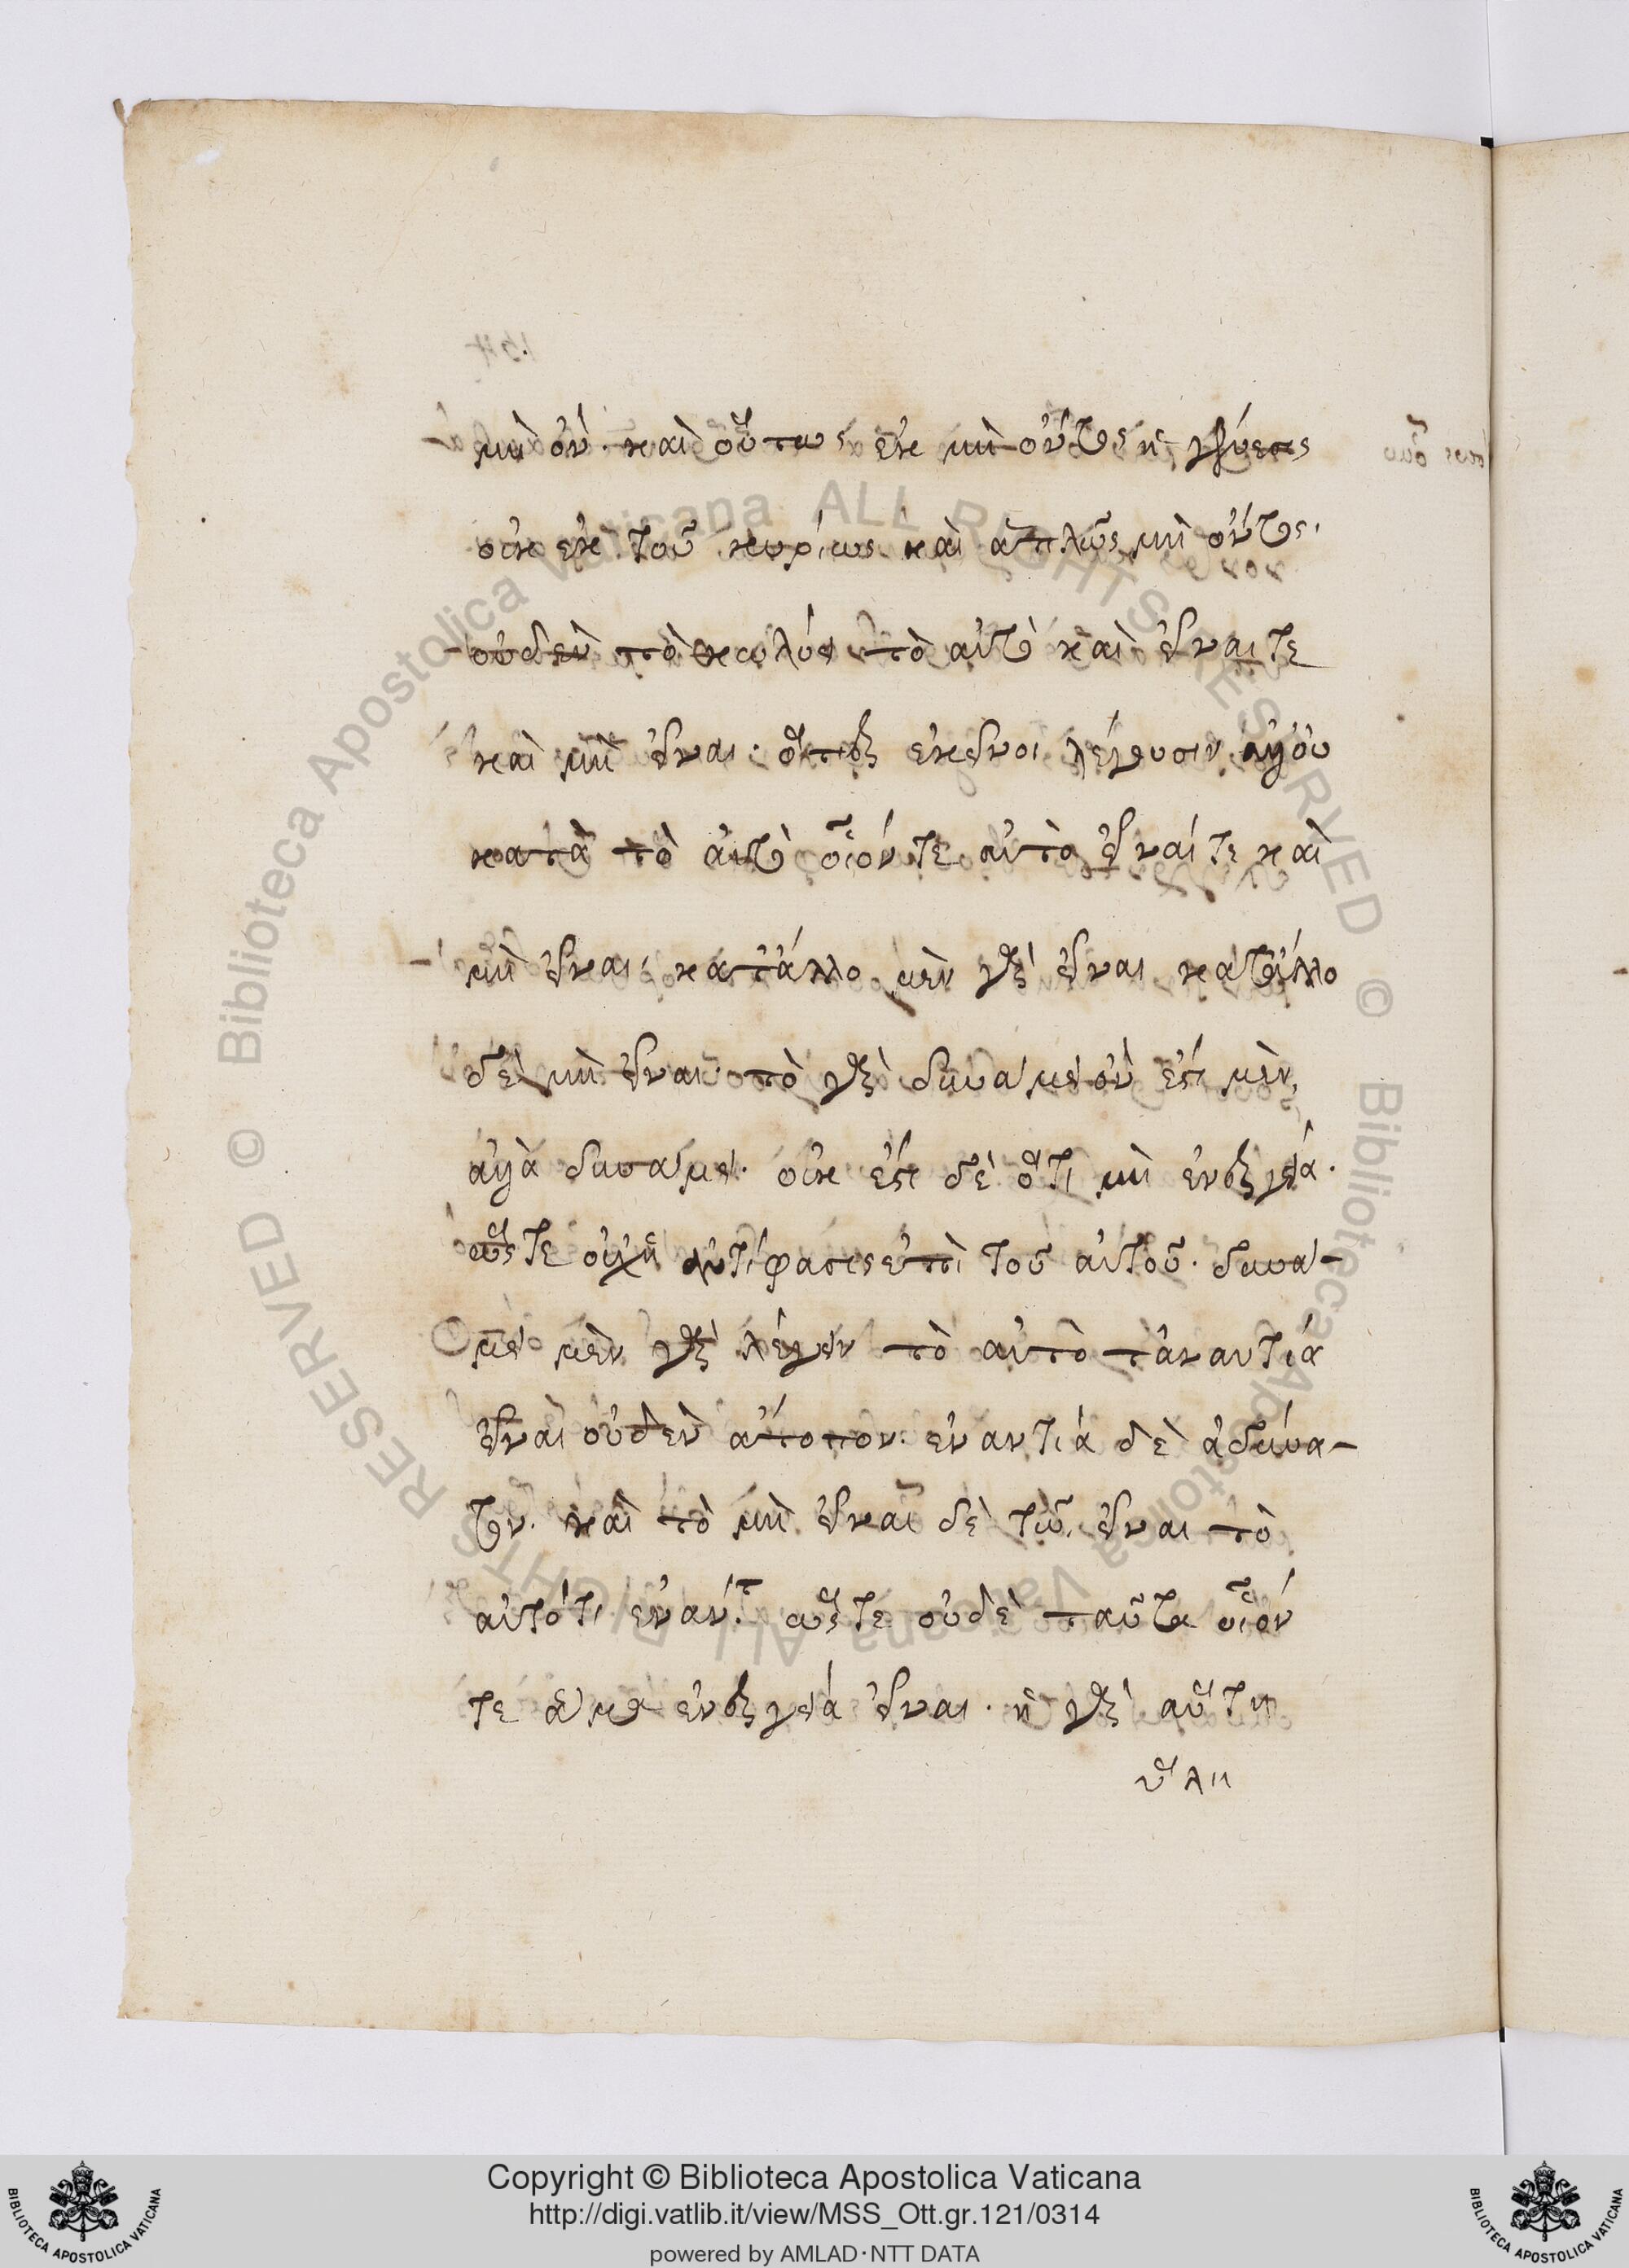 μὴ ὄν. καὶ οὕτως ἐκ μὴ ὄντος ἡ γένεσις
οὐκ ἐκ τοῦ κυρίως καὶ ἁπλῶς μὴ ὄντος.
οὐδὲν τὸ κωλύει τὸ αὐτὸ καὶ εἶναι τε
καὶ μὴ εἶναι. ὅπερ ἐκεῖνοι λέγουσιν. ἀλλ' οὐ
κατὰ τὸ αὐτὸ οἷόν τε αὐτὸ εἶναί τε καὶ
μὴ εἶναι, κατ' ἄλλο μὲν γὰρ εἶναι κατ' ἄλλο
δὲ μὴ εἶναι. τὸ γὰρ δυνάμει ὂν ἔστι μὲν,
ἀλλὰ δυνάμει. οὐκ ἔστι δὲ ὅτι μὴ ἐνεργείᾳ.
ὥστε οὐχ ἡ ἀντίφασις ἐπὶ τοῦ αὐτοῦ. δυνά-
μει μὲν γὰρ λέγειν τὸ αὐτὸ τἀναντία
εἶναι οὐδὲν ἄτοπον. ἐναντία δὲ ἀδύνα-
τον. καὶ τὸ μὴ εἶναι δὲ τῷ εἶναι τὸ
αὐτό τι ἐναντ ὥστε οὐδὲ ταῦτα οἷόν
τε ἅμα ἐνεργείᾳ εἶναι. ἡ γὰρ αὕτη
ὕλη
Copyright © Biblioteca Apostolica Vaticana
http://digi.vatlib.it/view/MSS_Ott.gr.121/0314
powered by AMLAD·NTT DATA
BIBLIOTECA APOSTOLICA VATICANA
BIBLIOTECA APOSTOLICA VATICANA
© Biblioteca Apostolica Vaticana ALL RIGHTS RESERVED
© Biblioteca Apostolica Vaticana ALL RIGHTS RESERVED